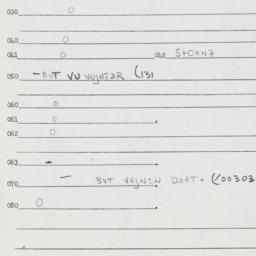 030 0
040 0
042 0 062 S+0X47
050 - BUT VU VOJNTSR (131
060 0
061 0
062 0
063 -
070 - BUT VOJN1N DORT+ (/00303
080 0